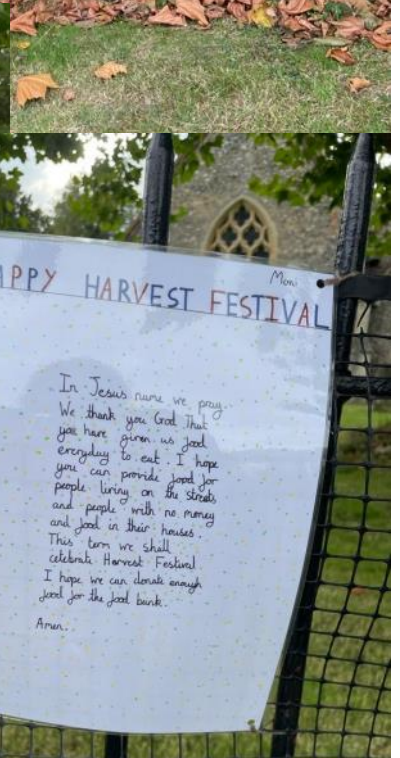 Moni
APPY HARVEST FESTIVAL
In Jesus name we pray.
We thank you God that
you have given us food
everyday to eat. I hope
you can provide food for
people living on the streets
and people with no money
and food in their houses.
This term we shall
celebrate Harvest Festival
I hope we can donate enough
food for the food bank.
Amen.